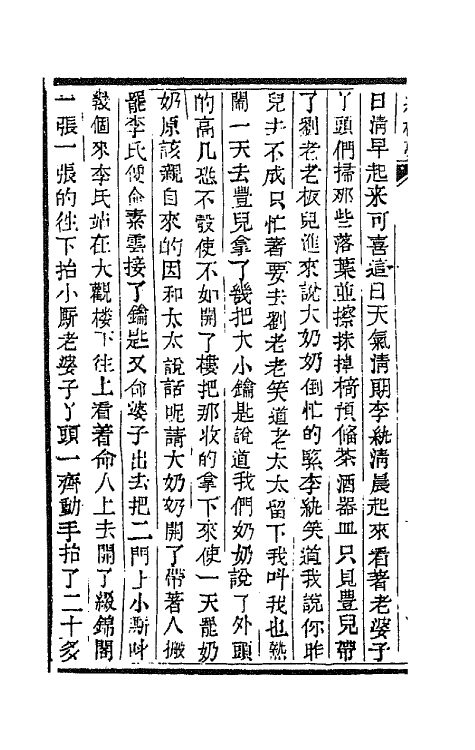 日淸早起来可喜這日天氣淸朗李紈淸晨起來看著老婆子
丫頭們掃那些落葉並擦抹掉椅預俻茶酒器皿只見豊兒帶
了劉老老板兒進來說大奶奶倒忙的緊李紈笑道我說你昨
兒去不成只忙著要去劉老老笑道老太太留下我呌我也熱
鬧一天去豊兒拿了幾把大小鑰匙說道我們奶奶說了外頭
的高几恐不彀使不如開了樓把那收的拿下來使一天罷奶
奶原該親自來的因和太太說話呢請大奶奶開了帶著人搬
罷李氏便命素雲接了鑰匙又命婆子出去把二門上小厮呌
幾個來李氏站在大觀楼下往上看着命人上去開了綴錦閣
一張一張的往下抬小厮老婆子丫頭一齊動手抬了二十多